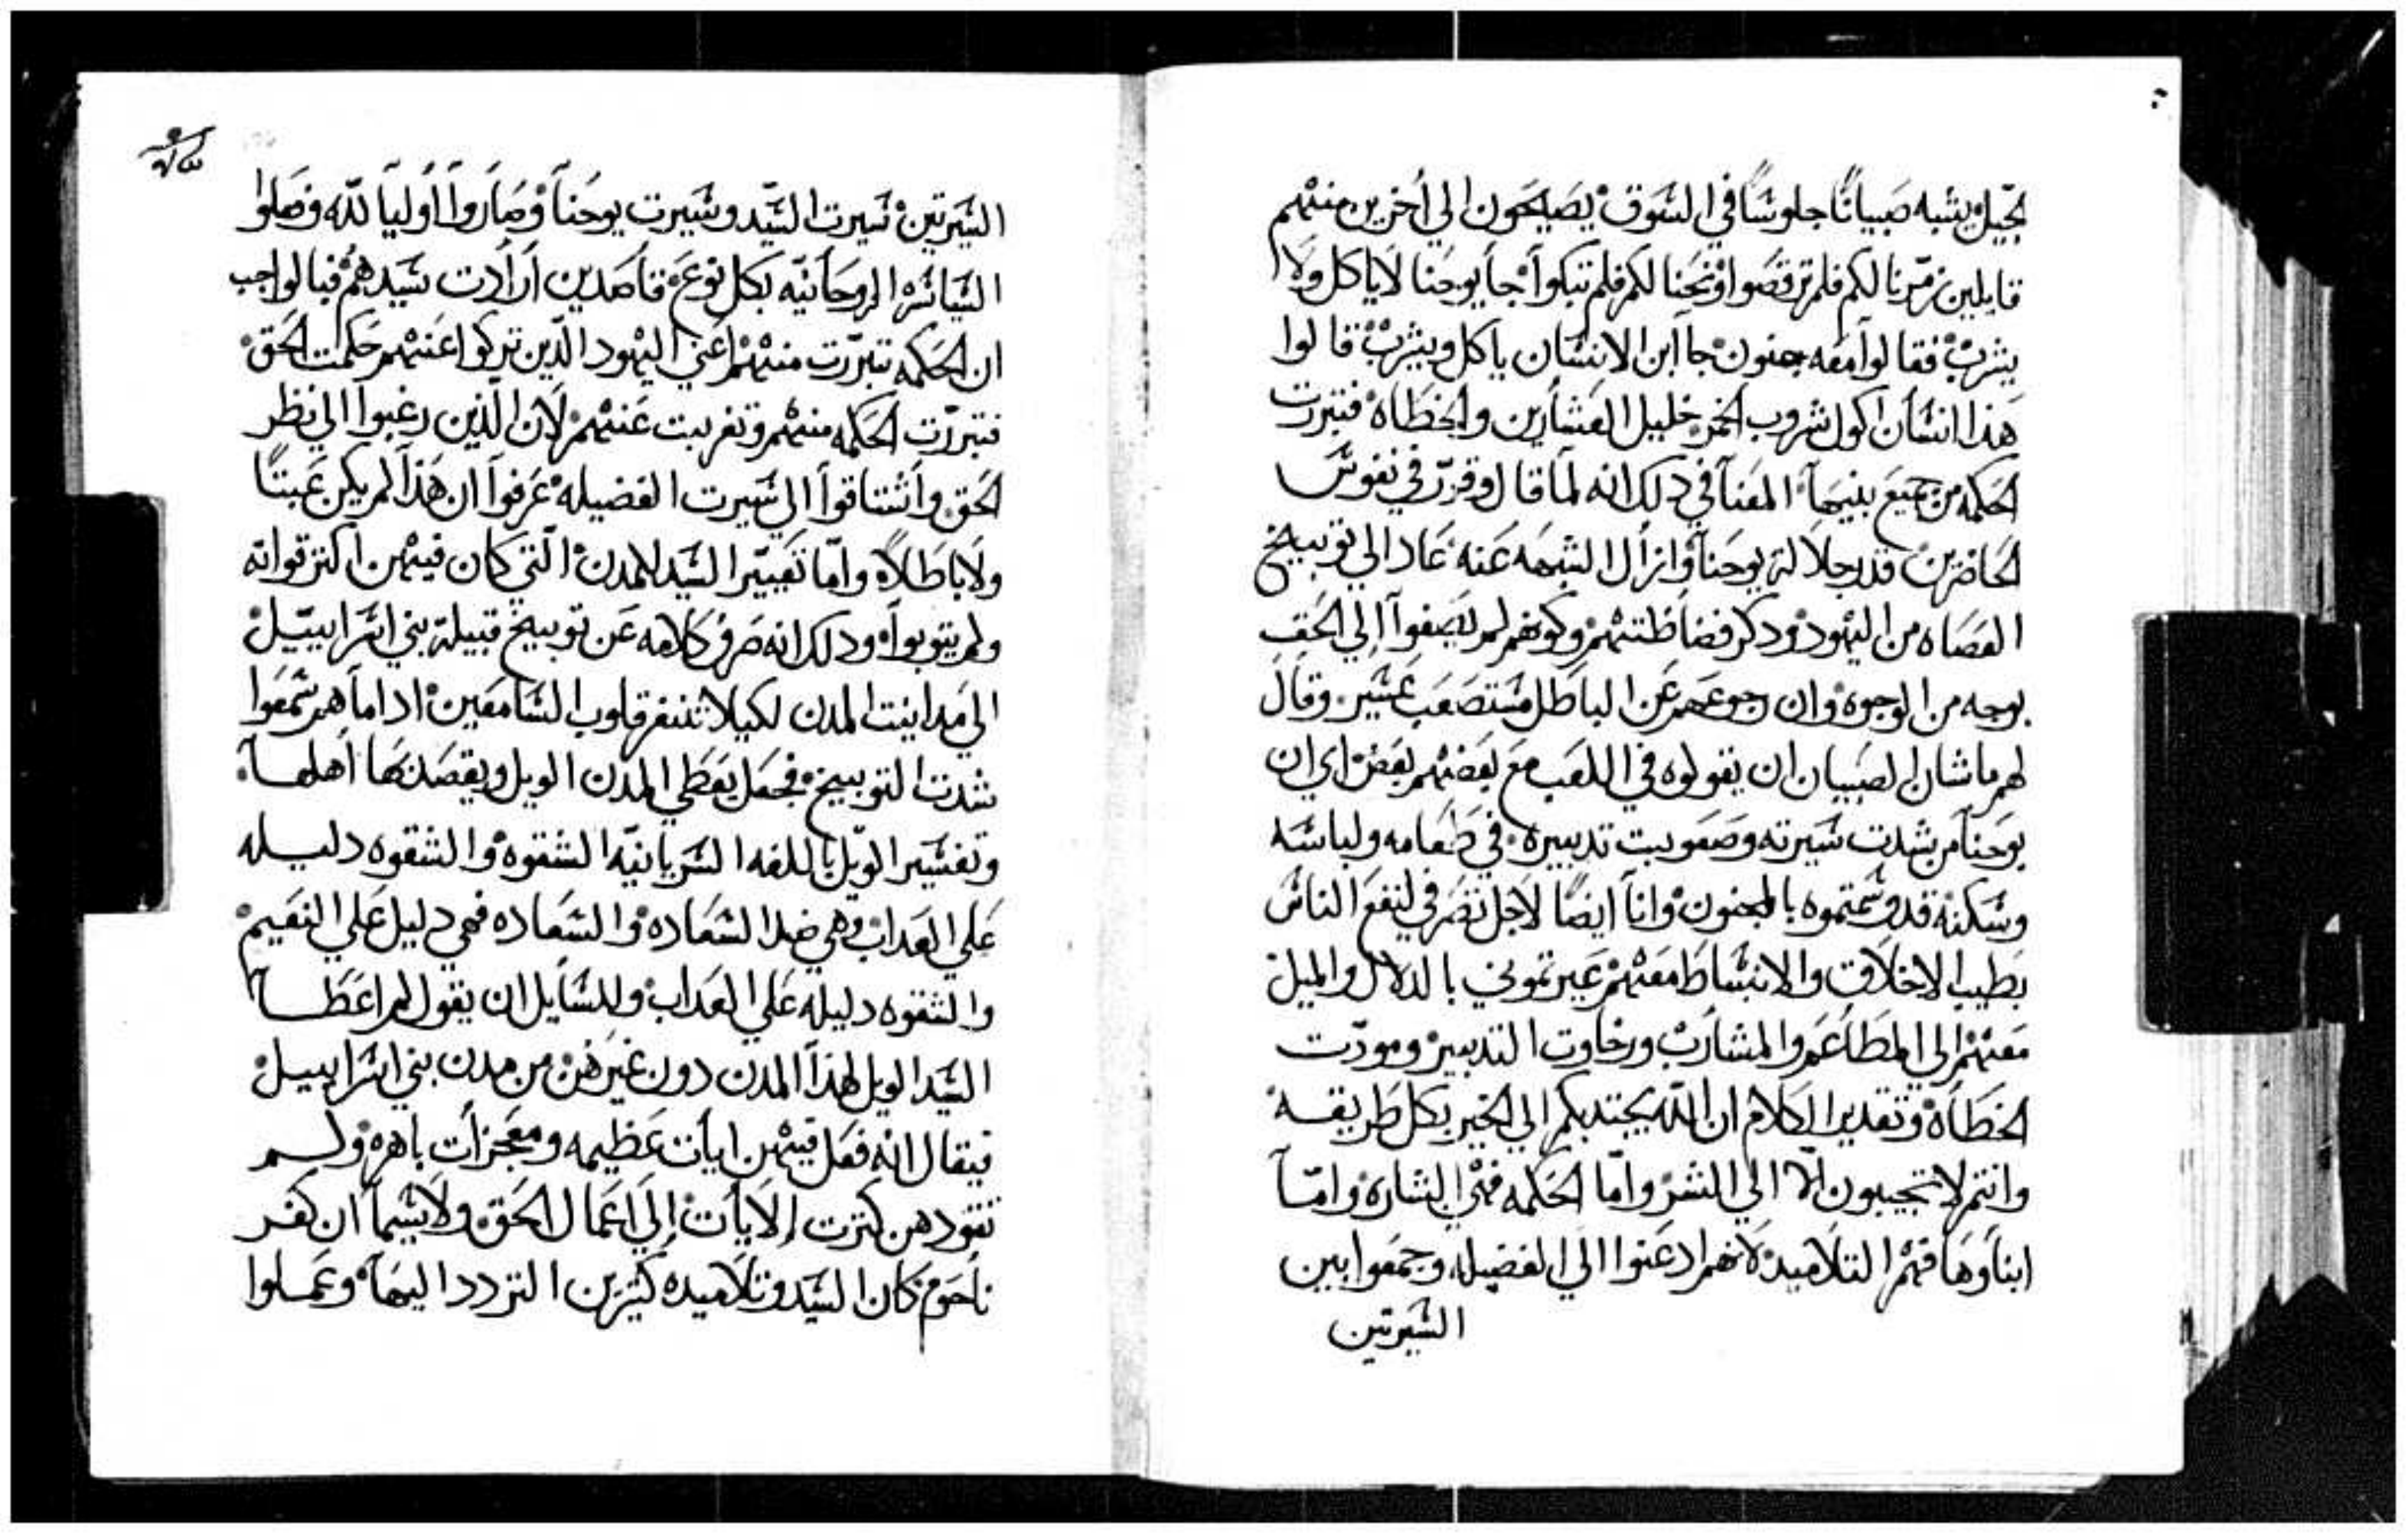 الجيل يشبه صبيانًا جلوسًا في السوق يصيحون الي اخرين منهم
قايلين زمّرنا لكم فلم ترقصوا ونحنا لكم فلم تبكوا جا يوحنا لا ياكل ولا
يشرب فقالوا معه جنون جا ابن الانسان ياكل ويشرب قالوا
هذا انسان اكول شروب الخمر خليل العشارين والخطاه فتبررت
الحكمه من جميع بنيها المعنا في دلك انه لما قال وقرر في نفوس
الحاضرين قدر جلالة يوحنا وازال الشبهه عنه عاد الي توبيخ
العصاه من اليهود ودكر فضاظتهم وكونهم لم يصغوا الي الحق
بوجه من الوجوه وان رجوعهم عن الباطل مستصعب عسير وقال
لهم ما شان الصبيان ان يقولوه في اللعب مع بعضهم بعض اي ان
يوحنا من شدت سيرته وصعوبت تدبيره في طعامه ولباسه
وسكنه قد وسمتموه بالمجنون وانا ايضًا لاجل تصرفي لنفع الناس
بطيب الاخلاق والانبساط معهم عيرتموني بالدلال والميل
معهم الي المطاعم والمشارب ورخاوت التدبير ومودّت
الخطاه وتقدير الكلام ان الله يجتدبكم الي الخير بكل طريقه
وانتم لا تجيبون الا الي الشر واما الحكمه فهي البشاره واما
ابناوها فهم التلاميد لانهم ادعنوا الي الفضيله وجمعوا بين
السيرتين
السيرتين سيرت السيّد وسيرت يوحنا وصاروا اوليا لله وفعلوا
السياسه الروحانيه بكل نوع قاصدين ارادت سيدهم فبالواجب
ان الحكمه تبررت منهم اعني اليهود الّدين تركوا عنهم حكمت الحق
فتبررت الحكمه منهم وتغربت عنهم لان الّدين رغبوا الي نظر
الحق واشتاقوا الي سيرت الفضيله عرفوا ان هذا لم يكن عبتًا
ولا باطلاً واما تعيير السيد للمدن التي كان فيهن اكتر قواته
ولم يتوبوا ودلك انه صرف كلامه عن توبيخ قبيلة بني اسراييل
الي مداينت المدن لكيلا تنفر قلوب السامعين ادا ما هم سمعوا
شدت التوبيخ فجعل يعطي المدن الويل ويقصد بها اهلها
وتفسير الويل باللغه السريانيّه الشقوه والشقوه دليله
علي العداب وهي ضد السعاده والسعاده فهي دليل علي النعيم
والشقوه دليله علي العداب وللسايل ان يقول لم اعطا
السيد الويل لهذا المدن دون غيرهن من مدن بني اسراييل
فيقال انه فعل فيهن ايات عظيمه ومعجزات باهره ولم
تقودهن كترت الايات الي اعمال الحق ولا سيما ان كفر
ناحوم كان السيد وتلاميده كتيرين التردد اليها وعملوا